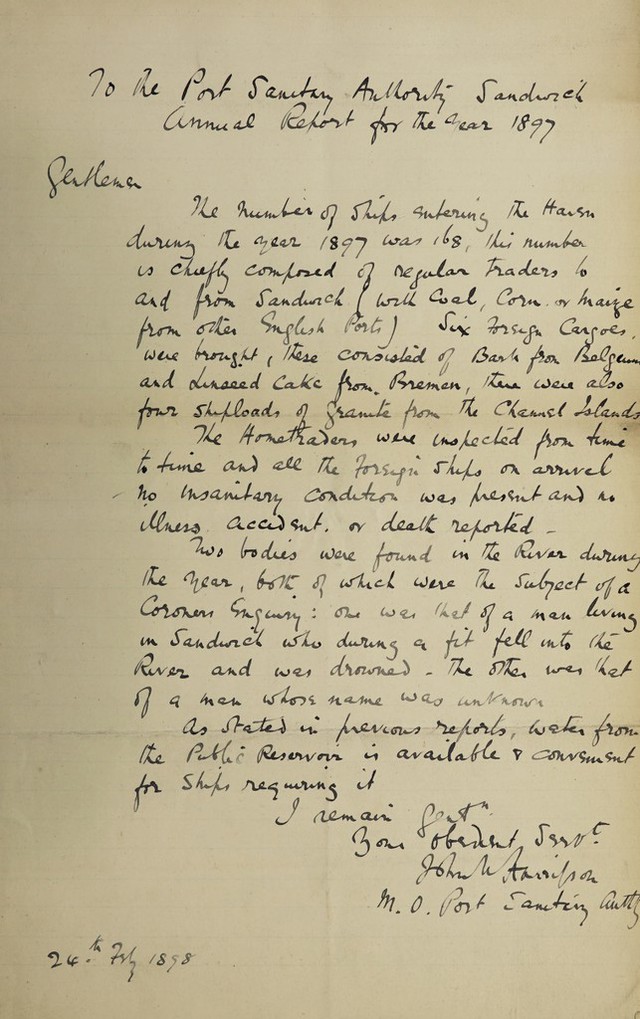 To the Port Sanitary Authority Sandwich
Annual Report for the year 1897
Gentlemen
The number of ships entering the Haven
during the year 1897 was 168, this number
is chiefly composed of regular traders to
and from Sandwich (with Coal, Corn or Maize
from other English Ports) Six Foreign Cargoes
were brought, these consisted of Bark from Belgium
and Linseed Cake from Bremen, there were also
four shiploads of Granite from the Channel Islands
The Hometraders were inspected from time
to time and all the Foreign Ships on arrival
no insanitary condition was present and no
illness, accident, or death reported -
Two bodies were found in the River during
the year, both of which were the subject of a
Coroners Enquiry: one was that of a man living
in Sandwich who during a fit fell into the
River and was drowned - the other was that
of a man whose name was unknown
As stated in previous reports, water from
the Public Reservoir is available & convenient
for Ships requiring it
I remain Gentn
Your obedient Servt.
John
M. O. Port Sanitary Authy
24th Feby 1898